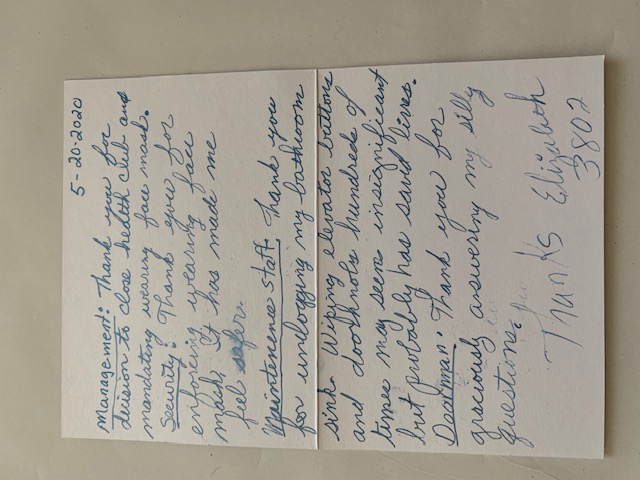 5-20-2020
Management: Thank you for
decision to close health club and
mandating wearing face mask.
Security: Thank you for
enforcing wearing face
mask. It has made me
feel safer.
Maintenence staff. Thank you
for unclogging my bathroom
sink. Wiping elevator buttons
and doorknobs hundreds of
times may seem insignificant
but probably has saved lives.
Doorman: Thank you for
graciously answering my silly
questions.
Thanks Elizabeth
3802